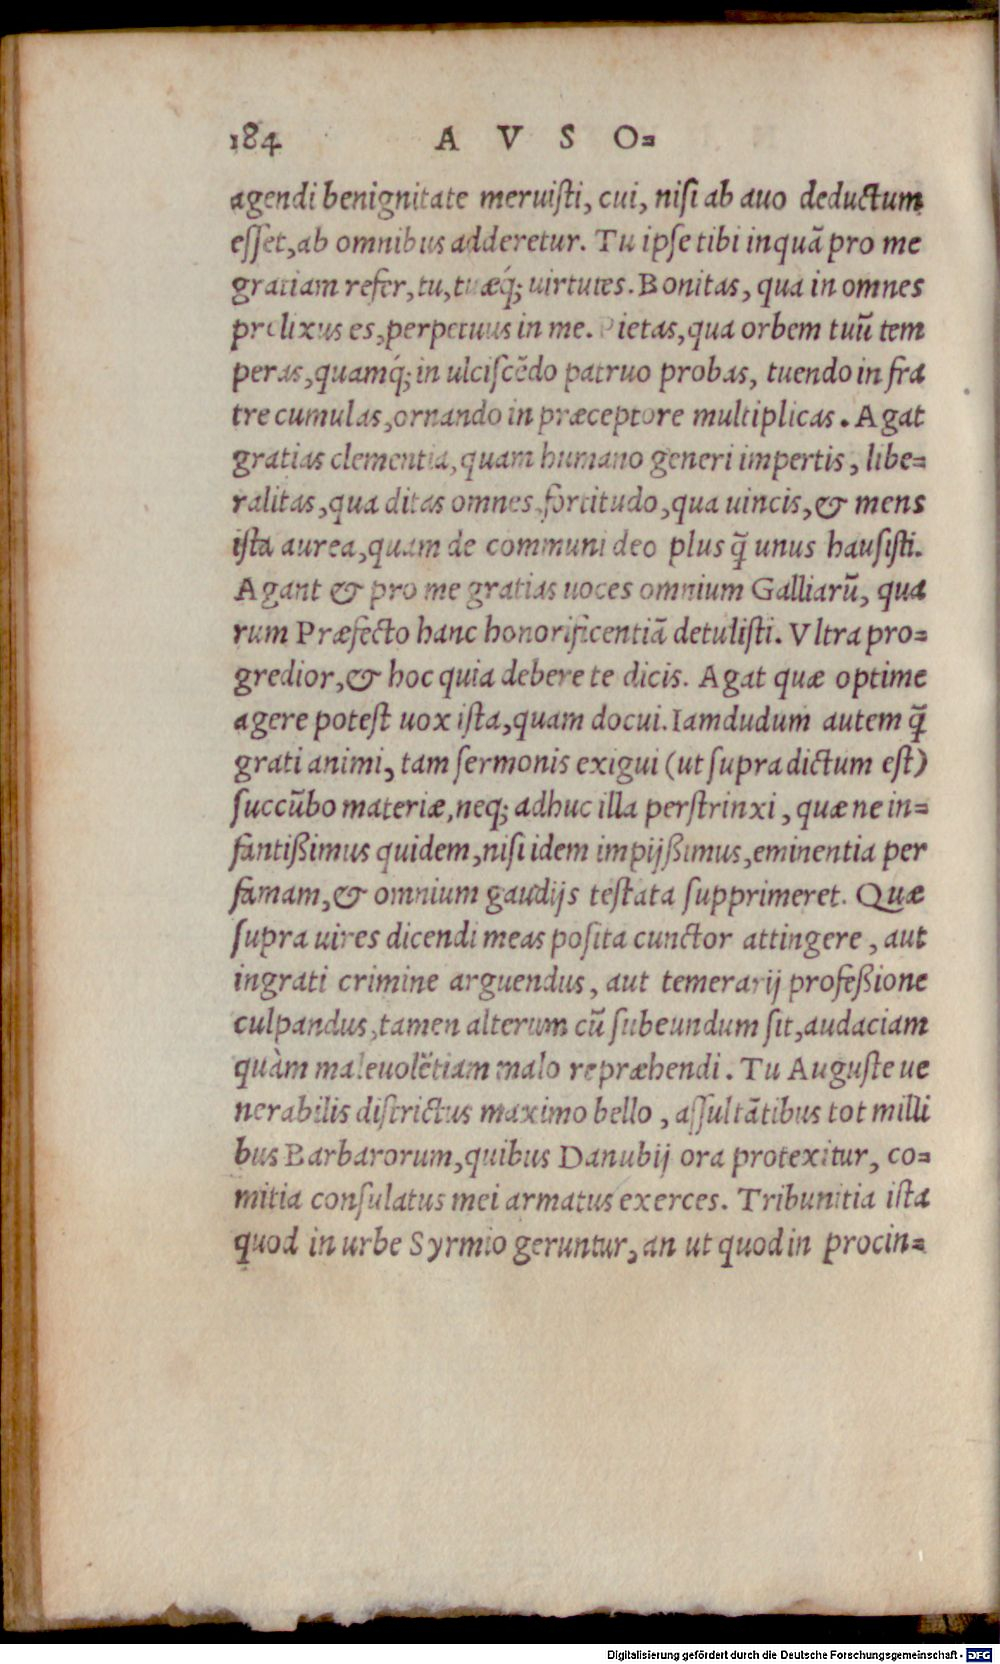 184 AVSO=
agendi benignitate meruisti, cui, nisi ab auo deductum
esset, ab omnibus adderetur. Tu ipse tibi inquã pro me
gratiam refer, tu, tuæq́; uirtutes. Bonitas, qua in omnes
prolixus es, perpetuus in me. Pietas, qua orbem tuũ tem
peras, quamq́; in ulciscẽdo patruo probas, tuendo in fra
tre cumulas, ornando in præceptore multiplicas. Agat
gratias clementia, quam humano generi impertis, libe=
ralitas, qua ditas omnes, fortitudo, qua uincis, & mens
ista aurea, quam de communi deo plus q̃ unus hausisti.
Agant & pro me gratias uoces omnium Galliarũ, qua
rum Præfecto hanc honorificentiã detulisti. Vltra pro=
gredior, & hoc quia debere te dicis. Agat quæ optime
agere potest uox ista, quam docui. Iamdudum autem q̃
grati animi, tam sermonis exigui (ut supra dictum est)
succũbo materiæ, neq; adhuc illa perstrinxi, quæ ne in=
fantißimus quidem, nisi idem impijßimus, eminentia per
famam, & omnium gaudijs testata supprimeret. Quæ
supra uires dicendi meas posita cunctor attingere, aut
ingrati crimine arguendus, aut temerarij profeßione
culpandus, tamen alterum cũ subeundum sit, audaciam
quàm maleuolẽtiam malo repræhendi. Tu Auguste ue
nerabilis districtus maximo bello, assultãtibus tot milli
bus Barbarorum, quibus Danubij ora protexitur, co=
mitia consulatus mei armatus exerces. Tribunitia ista
quod in urbe Syrmio geruntur, an ut quod in procin=
Digitalisierung gefördert durch die Deutsche Forschungsgemeinschaft - DFG